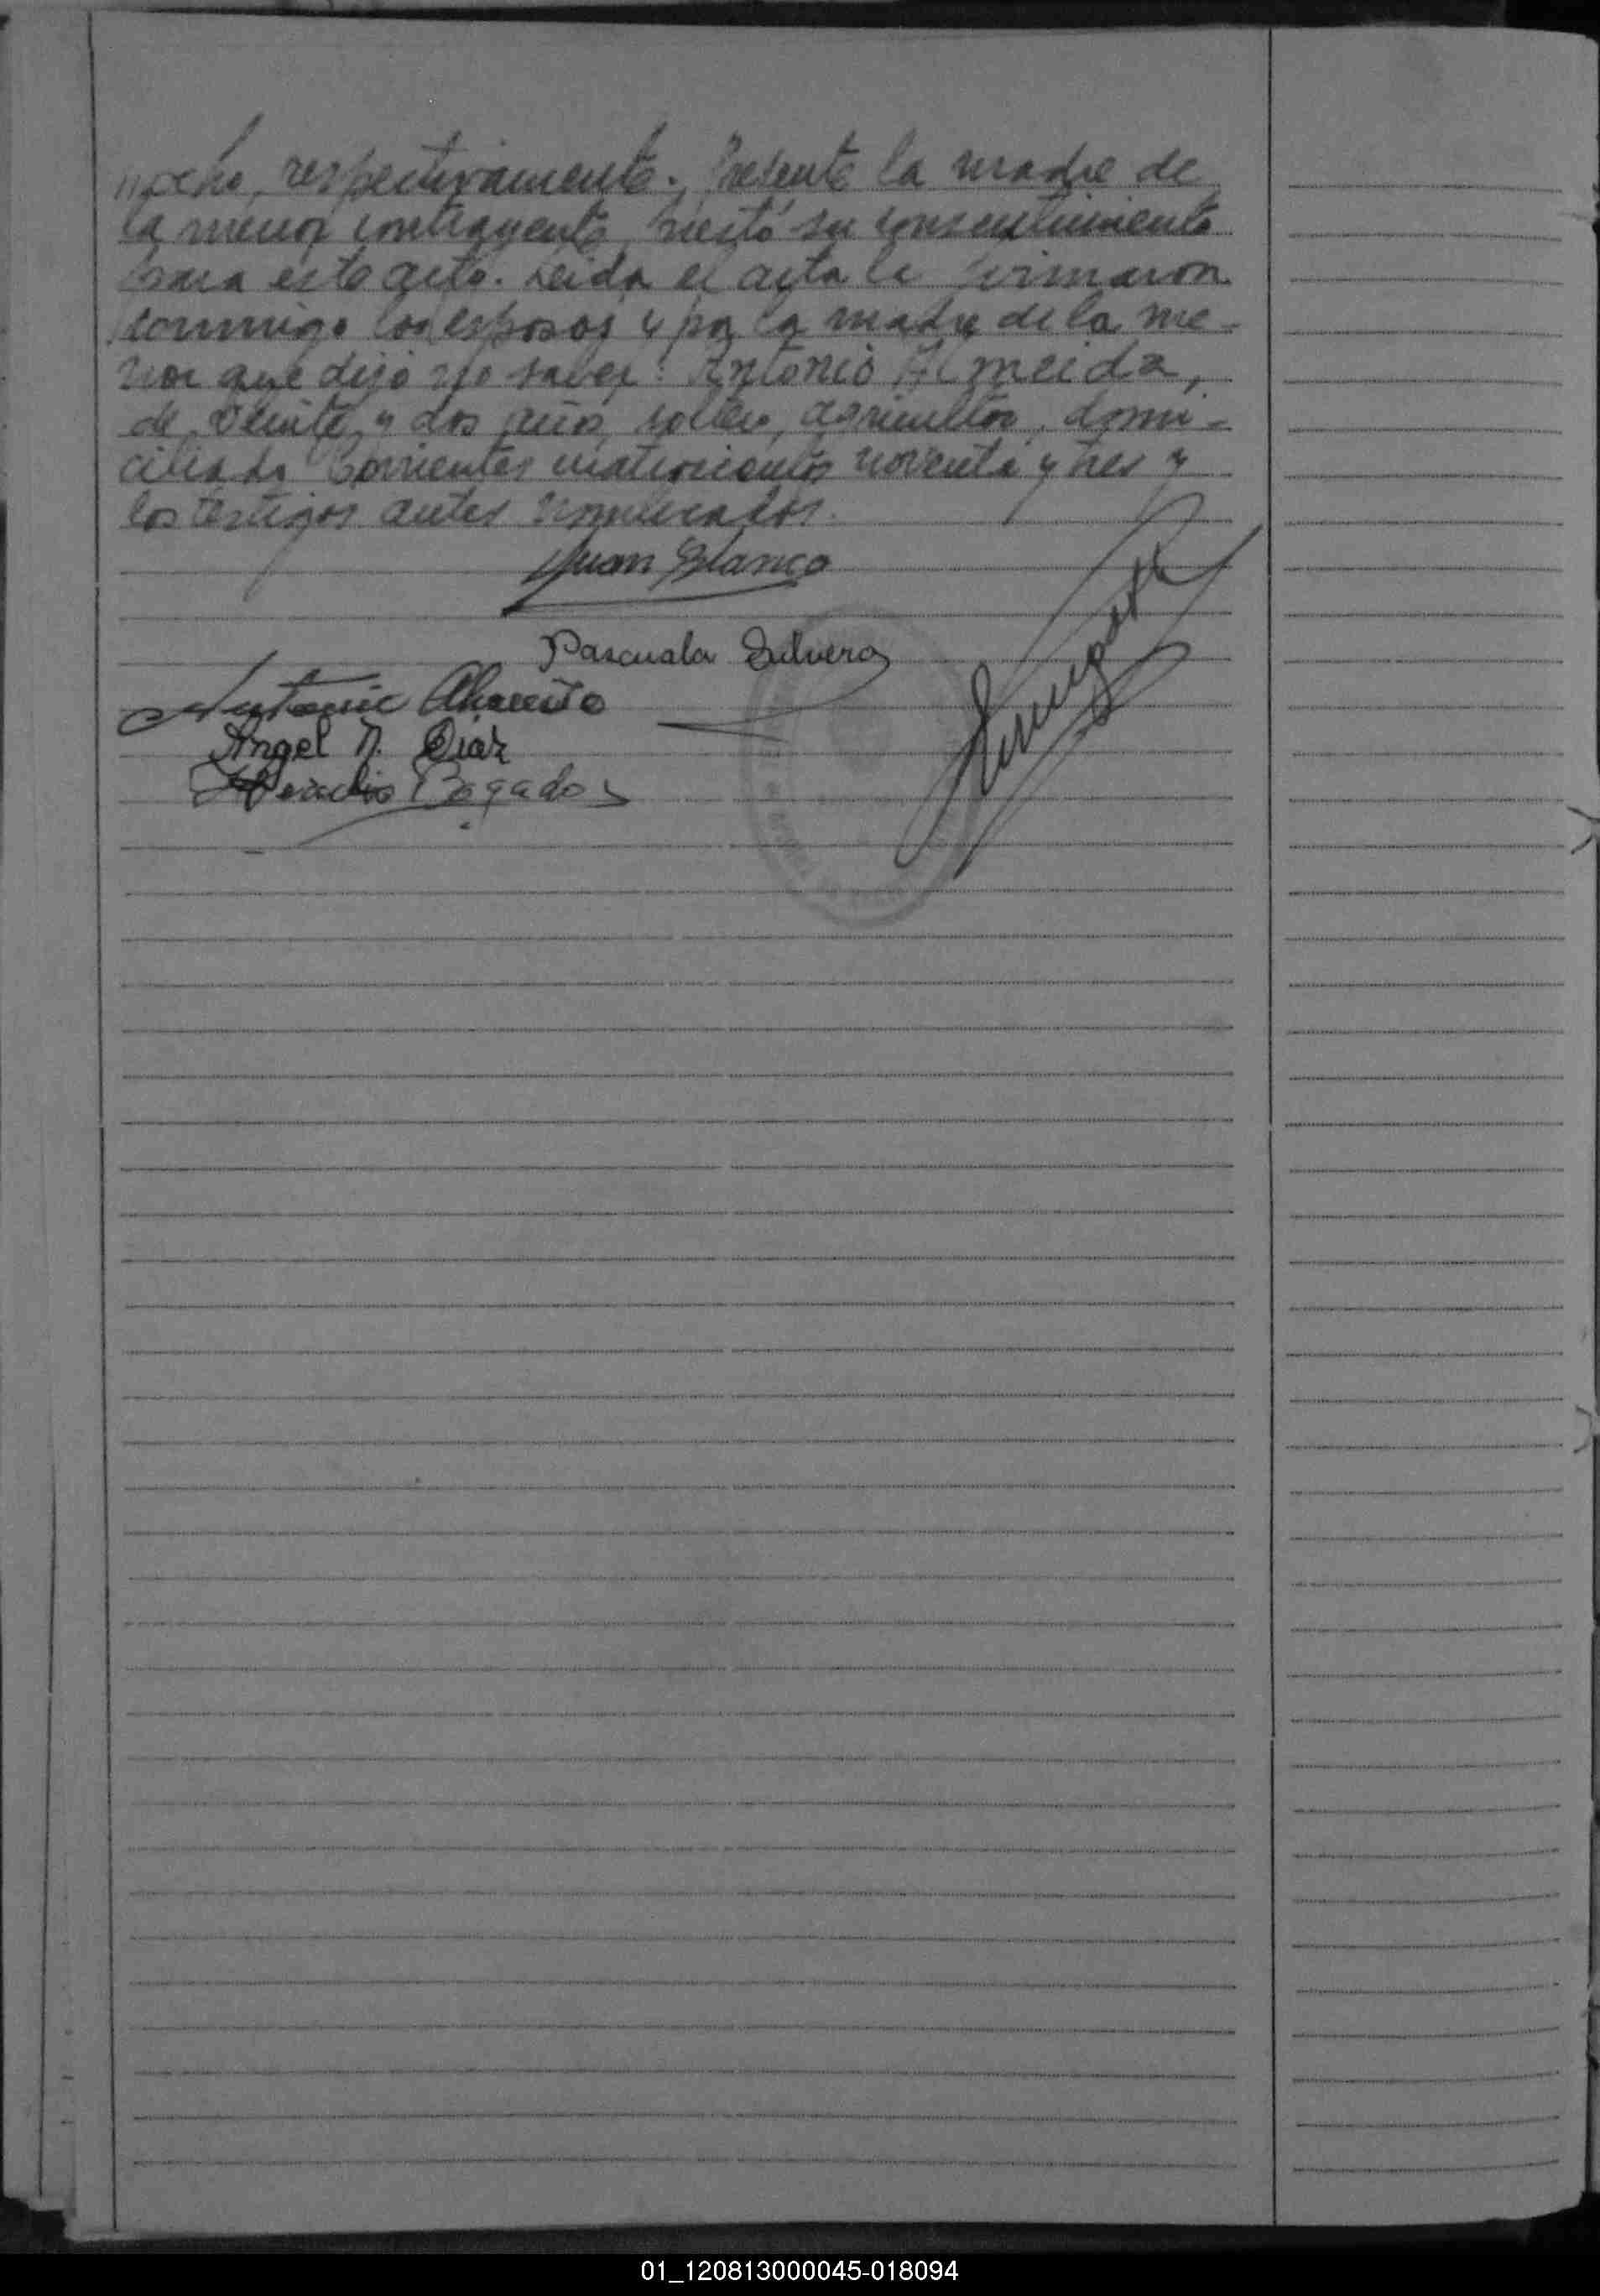 ocho, respectivamente. Presente la madre de
la menor contrayente, prestó su consentimiento
para este acto. Leida el acta la firmaron
conmigo los esposos y por la madre de la me-
nor que dijo no saber: Antonio Almeida,
de veinte y dos años, soltero, agricultor, domi-
ciliado Corrientes cuatrocientos noventa y tres y
los testigos antes nombrados.
Juan Blanco
Pascuala Silvero
Antonio
Angel D. Diaz
Bogado
01_120813000045-018094